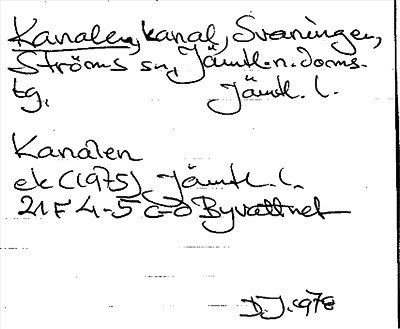 Kanalen, kanal, Svaningen,
Ströms sn, Jämtl. n. doms-
tg, Jämtl. l.
Kanalen
ek (1975) Jämtl. l.
21F 4-5 c-d Byvattnet
D.J. 1978